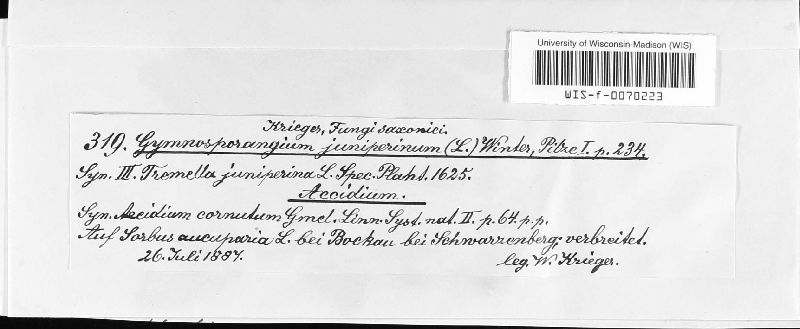 University of Wisconsin-Madison (WIS)
WIS-f-0070223
Krieger, Fungi saxonici.
319. Gymnosporangium juniperinum (L.) Winter, Pilze I. p. 234.
Syn. III. Tremella juniperina L. Spec. Plant. 1625.
Aecidium.
Syn. Aecidium cornutum Gmel. Linn. Syst. nat. II. p. 64. p.p.
Auf Sorbus aucuparia L. bei Bockau bei Schwarzenberg; verbreitet.
26. Juli 1887. leg. W. Krieger.